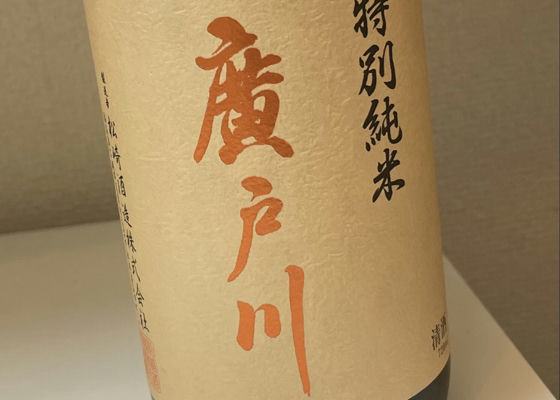 特別純米
廣戸川
醸造元 松崎酒造株式会社
清酒